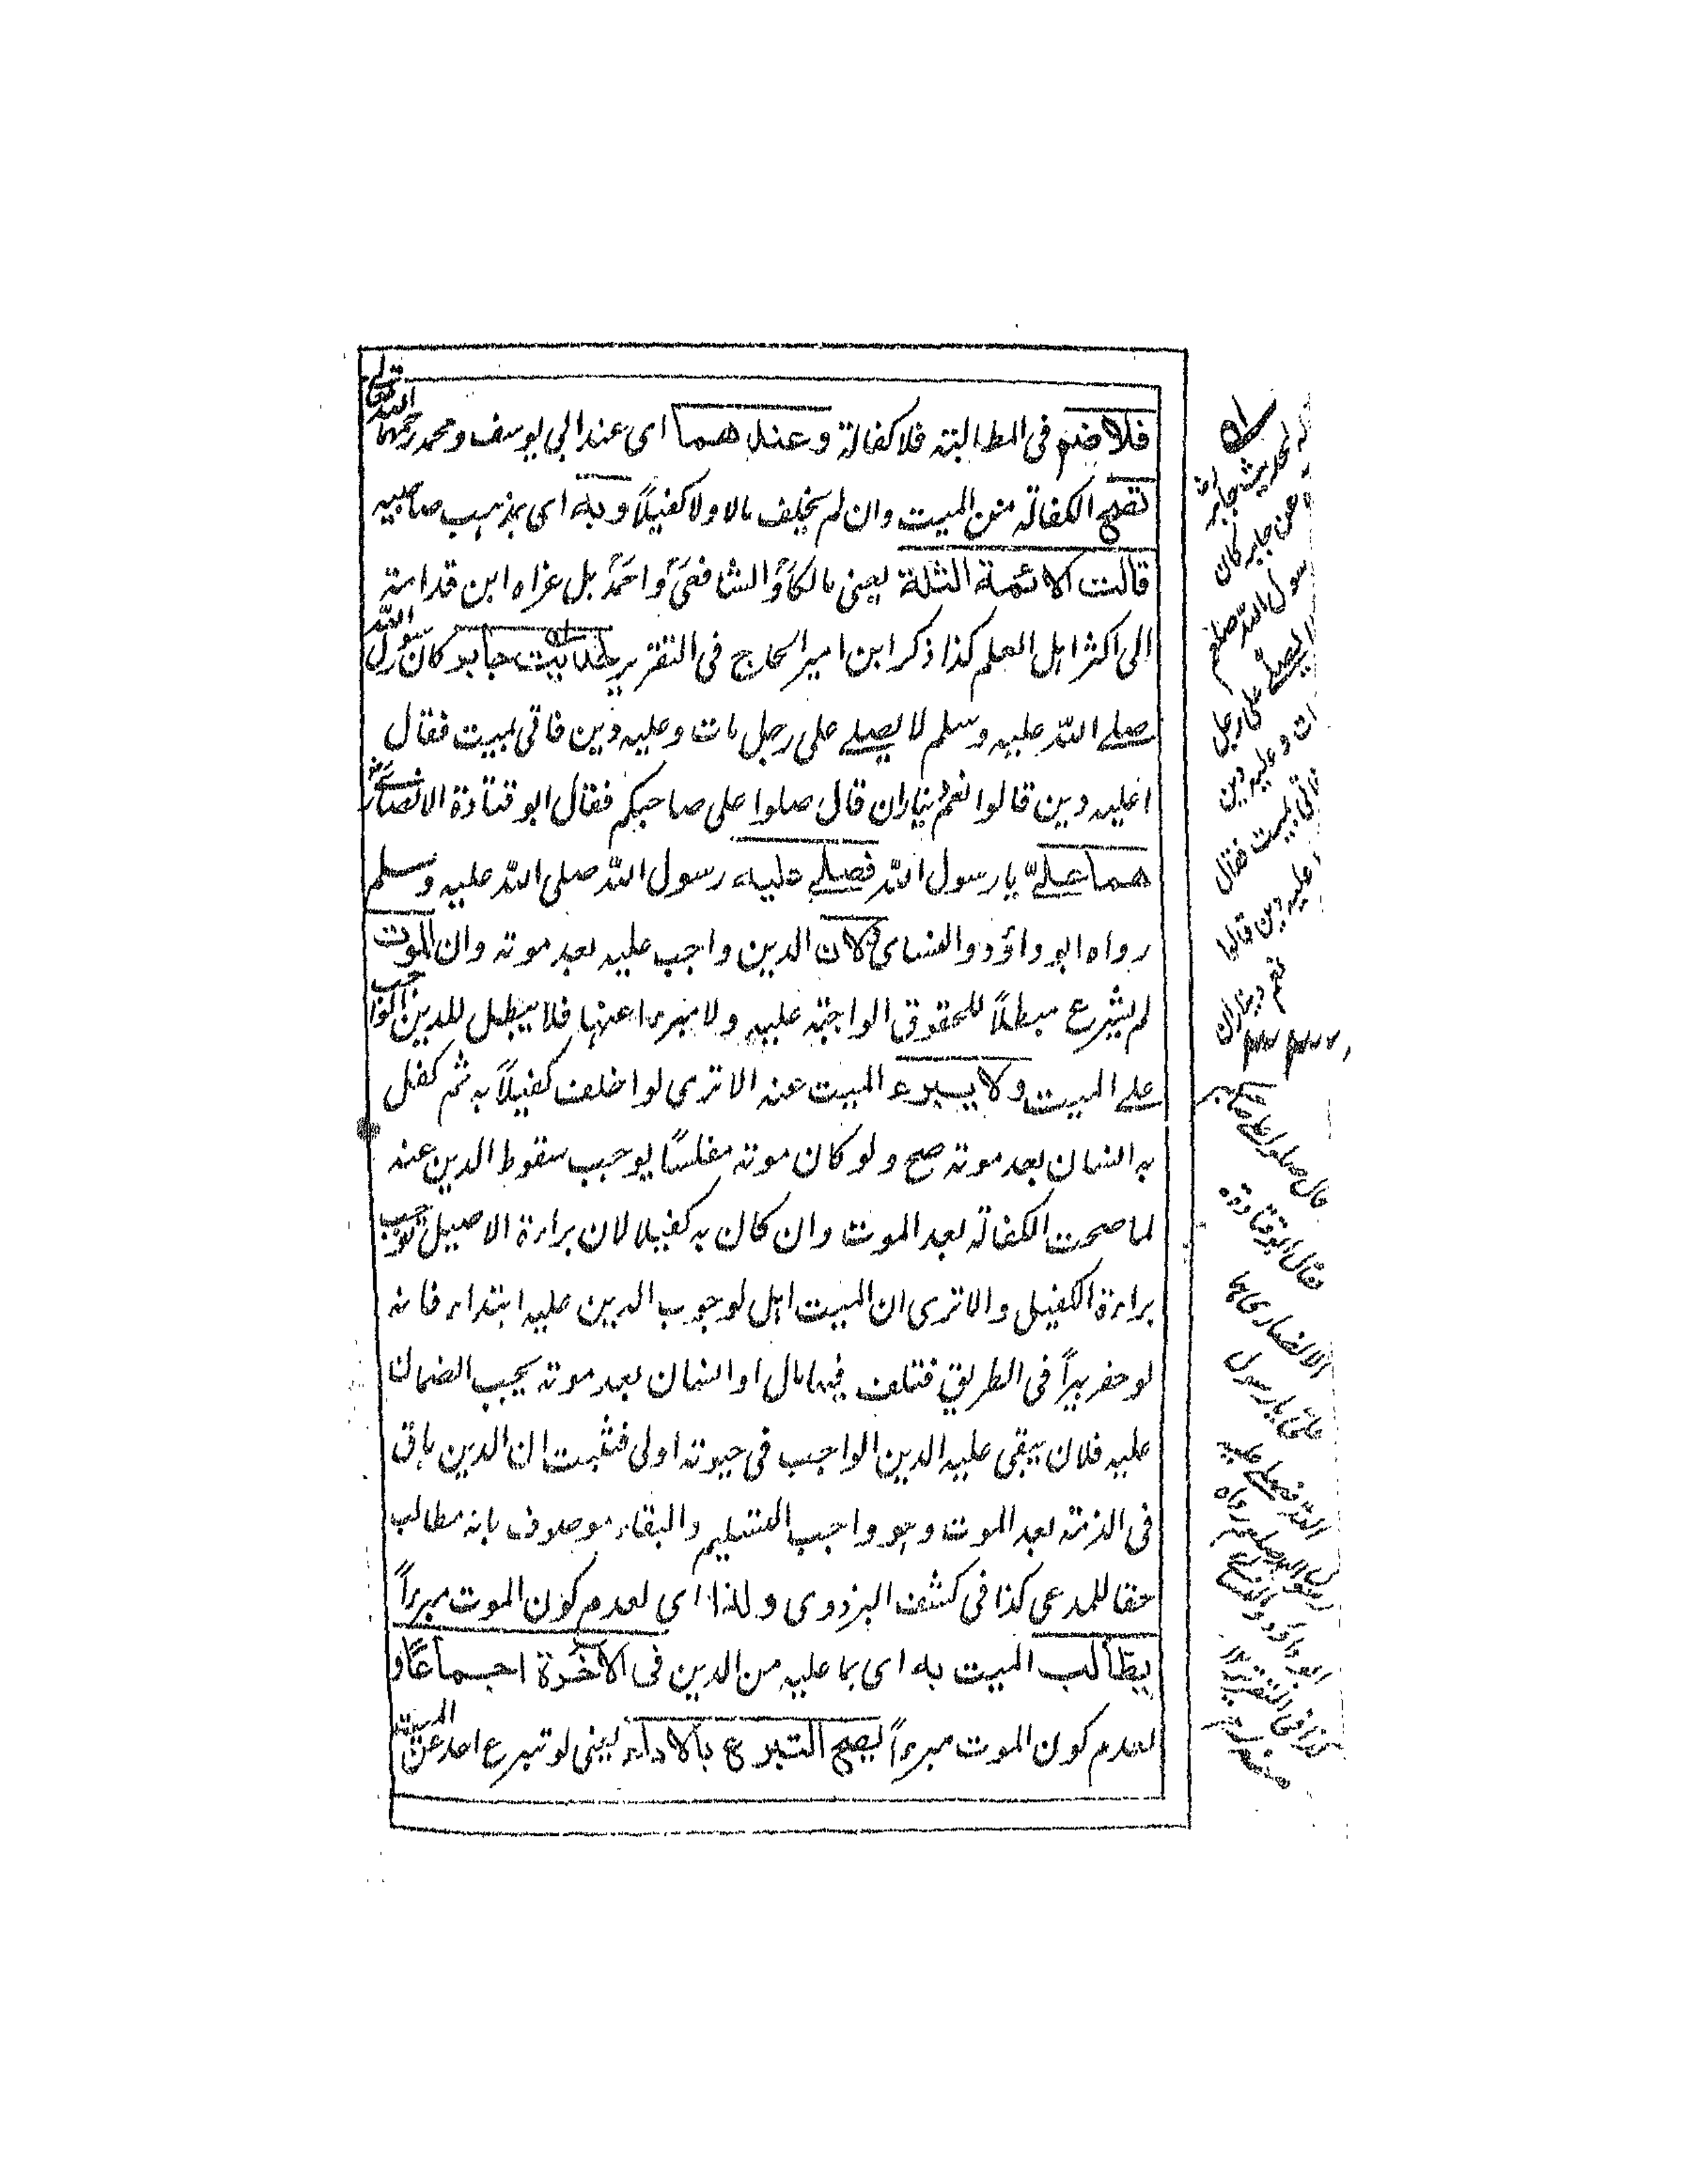 فلا ضم فى المطالبته فلا كفالة وعندهما اى عند ابى يوسف ومحمد رحمهما الله تعالى
تصح الكفالته من الميت وان لم يخلف مالا ولا كفيلاً وبه اى بمذهب صاحبيه
قالت الائمة الثلثة يعنى مالكاً والشافعى واحمد بل عزاه ابن قدامته
الى اكثر اهل العلم كذا ذكر ابن امير الحاج فى التقرير لحديث جابر كان رسول الله
صلے الله عليه وسلم لا يصلے على رجل مات وعليه دين فاتى بميت فقال
اعليه دين قالوا نعم ديناران قال صلوا على صاحبكم فقال ابو قتادة الانصارى
هما علےّ يا رسول الله فصلے عليه رسول الله صلى الله عليه وسلم
رواه ابو داؤد والنسائى لان الدين واجب عليه بعد موته وان الموت
لم يشرع مبطلاً للحقوق الواجبة عليه ولا مبرءا عنها فلا يبطل للدين الواجب
علے الميت ولا يبرء الميت عنه الا ترى لو اخلف كفيلاً به ثم كفل
به انسان بعد موته صح ولو كان موته مفلساً يوجب سقوط الدين عنه
لما صحت الكفالة بعد الموت وان كان به كفيلا لان براءة الاصيل توجب
براءة الكفيل والا ترى ان الميت اهل لوجوب الدين عليه ابتداء فانه
لو حفر بيراً فى الطريق فتلف فيها مال او انسان بعد موته يجب الضمان
عليه فلان يبقى عليه الدين الواجب فى حيوته اولى فثبت ان الدين باق
فى الذمة بعد الموت وهو واجب التسليم والبقاء موصوف بانه مطالب
حقا للمدعى كذا فى كشف البزدوى ولذا اى لعدم كون الموت مبرءاً
يطالب الميت به اى بما عليه من الدين فى الآخرة اجماعاً و
لعدم كون الموت مبرءاً يصح التبرع بالاداء يعنى لو تبرع احد عن الميت
له لحديث جابر
عن جابر كان
رسول الله صلعم
لا يصلے على رجل
مات وعليه دين
فاتى بميت فقال
اعليه دين قالوا
نعم ديناران
قال صلوا على صاحبكم
فقال ابو قتادة
الانصارى هما
علىّ يا رسول
الله فصلے عليه
رسول الله صلعم رواه
ابو داؤد والنسائى
كذا فى التقرير